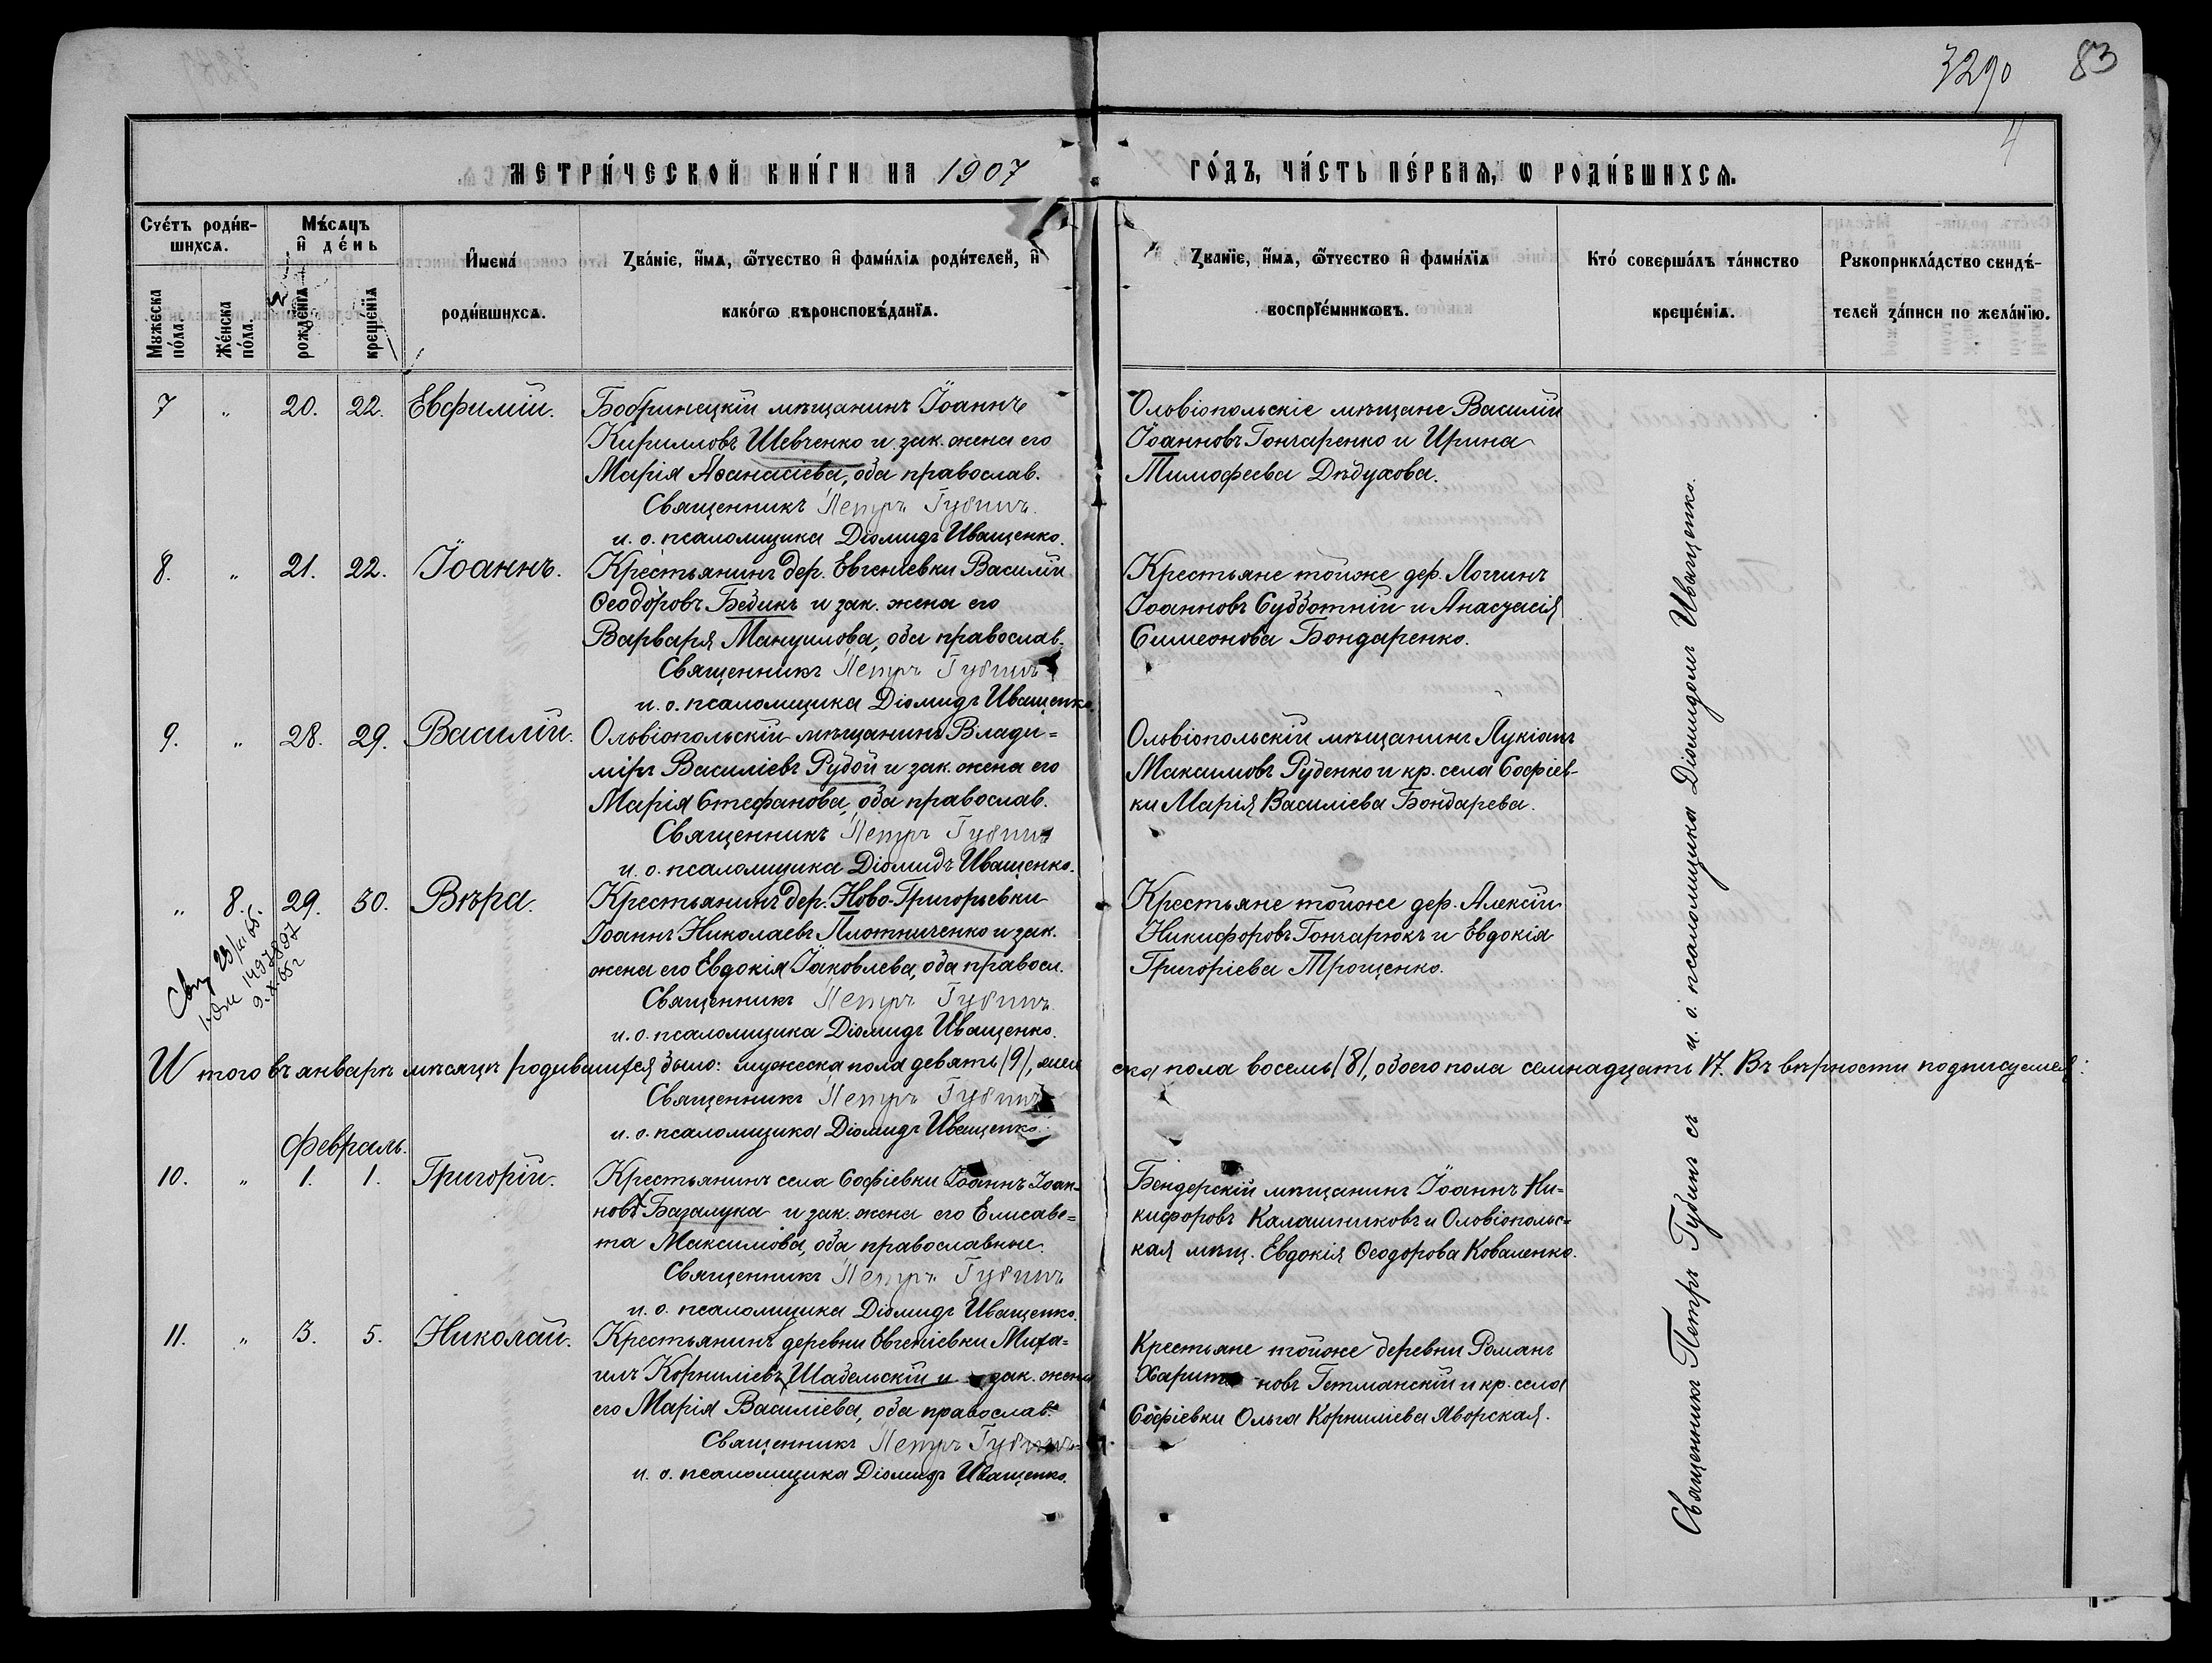 3290 83
4
МЕТРИ́ЧЕСКОЙ КНИ́ГИ НА 1907 ГО́ДЪ, ЧА́СТЬ ПЕ́РВАѦ, Ѡ РОДИ́ВШИХСѦ.
Счéтъ роди́в-
шихсѧ.
Мужеска
по́ла.
Же́нска
по́ла.
Мѣ́сѧцъ
и҆ де́нь
рожде́нїѧ
креще́нїѧ
И҆мена̀
роди́вшихсѧ.
Зва́нїе, и҆́мѧ, ѻ҆́тчество и҆ фами́лїѧ роди́телей, и҆
како́гѡ вѣроисповѣ́данїѧ.
Зва́нїе, и҆́мѧ, ѻ҆́тчество и҆ фами́лїѧ
воспрїе́мникѡвъ.
Кто̀ соверша́лъ та́инство
креще́нїѧ.
Рꙋкоприкла́дство свидѣ́-
телей за́писи по жела́нїю.
7 " 20. 22. Евфимій.
Бобринецкій мѣщанинъ Іоаннъ
Кирилловъ Шевченко и зак. жена его
Марія Аѳанасіева, оба православ.
Священникъ Петръ Губинъ.
и. о. псаломщика Діомидъ Иващенко.
Ольвіопольскіе мѣщане Василій
Іоанновъ Гончаренко и Ирина
Тимофеева Дѣдухова.
8. " 21. 22. Іоаннъ.
Крестьянинъ дер. Евгеніевки Василій
Ѳеодоровъ Бедикъ и зак. жена его
Варвара Мануилова, оба православ.
Священникъ Петръ Губинъ
и. о. псаломщика Діомидъ Иващенко.
Крестьяне тойже дер. Логгинъ
Іоанновъ Субботній и Анастасія
Симеонова Бондаренко.
9. " 28. 29. Василій.
Ольвіопольскій мѣщанинъ Влади=
міръ Василіевъ Рубой и зак. жена его
Марія Стефанова, оба православ.
Священникъ Петръ Губинъ
и. о. псаломщика Діомидъ Иващенко.
Ольвіопольскій мѣщанинъ Лукіанъ
Максимовъ Руденко и кр. села Софіев-
ки Марія Василіева Бондарева.
" 8. 29. 30. Вѣра.
Крестьянинъ дер. Ново-Григорьевки
Іоаннъ Николаевъ Плотниченко и зак.
жена его Евдокія Іаковлева, оба правосл.
Священникъ Петръ Губинъ.
и. о. псаломщика Діомидъ Иващенко.
Крестьяне тойже дер. Алексій
Никифоровъ Гончарюкъ и Евдокія
Григоріева Трощенко.
9.X.65г
Итого въ январѣ мѣсяцѣ родившихся было: мужеска пола девять /9/, жен ска пола восемь /8/, обоего пола семнадцать 17. Въ вѣрности подписуемся:
Священникъ Петръ Губинъ
и. о. псаломщика Діомидъ Иващенко.
Февраль.
10. " 1. 1. Григорій.
Крестьянинъ села Софіевки Іоаннъ Іоан-
новъ Багалука и зак. жена его Елисаве=
та Максимова, оба православные.
Священникъ Петръ Губинъ
и. о. псаломщика Діомидъ Иващенко.
Бендерскій мѣщанинъ Іоаннъ Ни=
кифоровъ Калашниковъ и Ольвіопольс=
кая мѣщ. Евдокія Ѳеодорова Коваленко.
11. " 3. 5. Николай.
Крестьянинъ деревни Евгеніевки Миха=
илъ Корниліевъ Шабельскій и зак. жена
его Марія Василіева, оба православ.
Священникъ Петръ Губинъ
и. о. псаломщика Діомидъ Иващенко.
Крестьяне тойже деревни Романъ
Харитоновъ Гетманскій и кр. села
Софіевки Ольга Корниліева Яворская.
Священникъ Петръ Губинъ съ и. о. псаломщика Діомидомъ Иващенко.